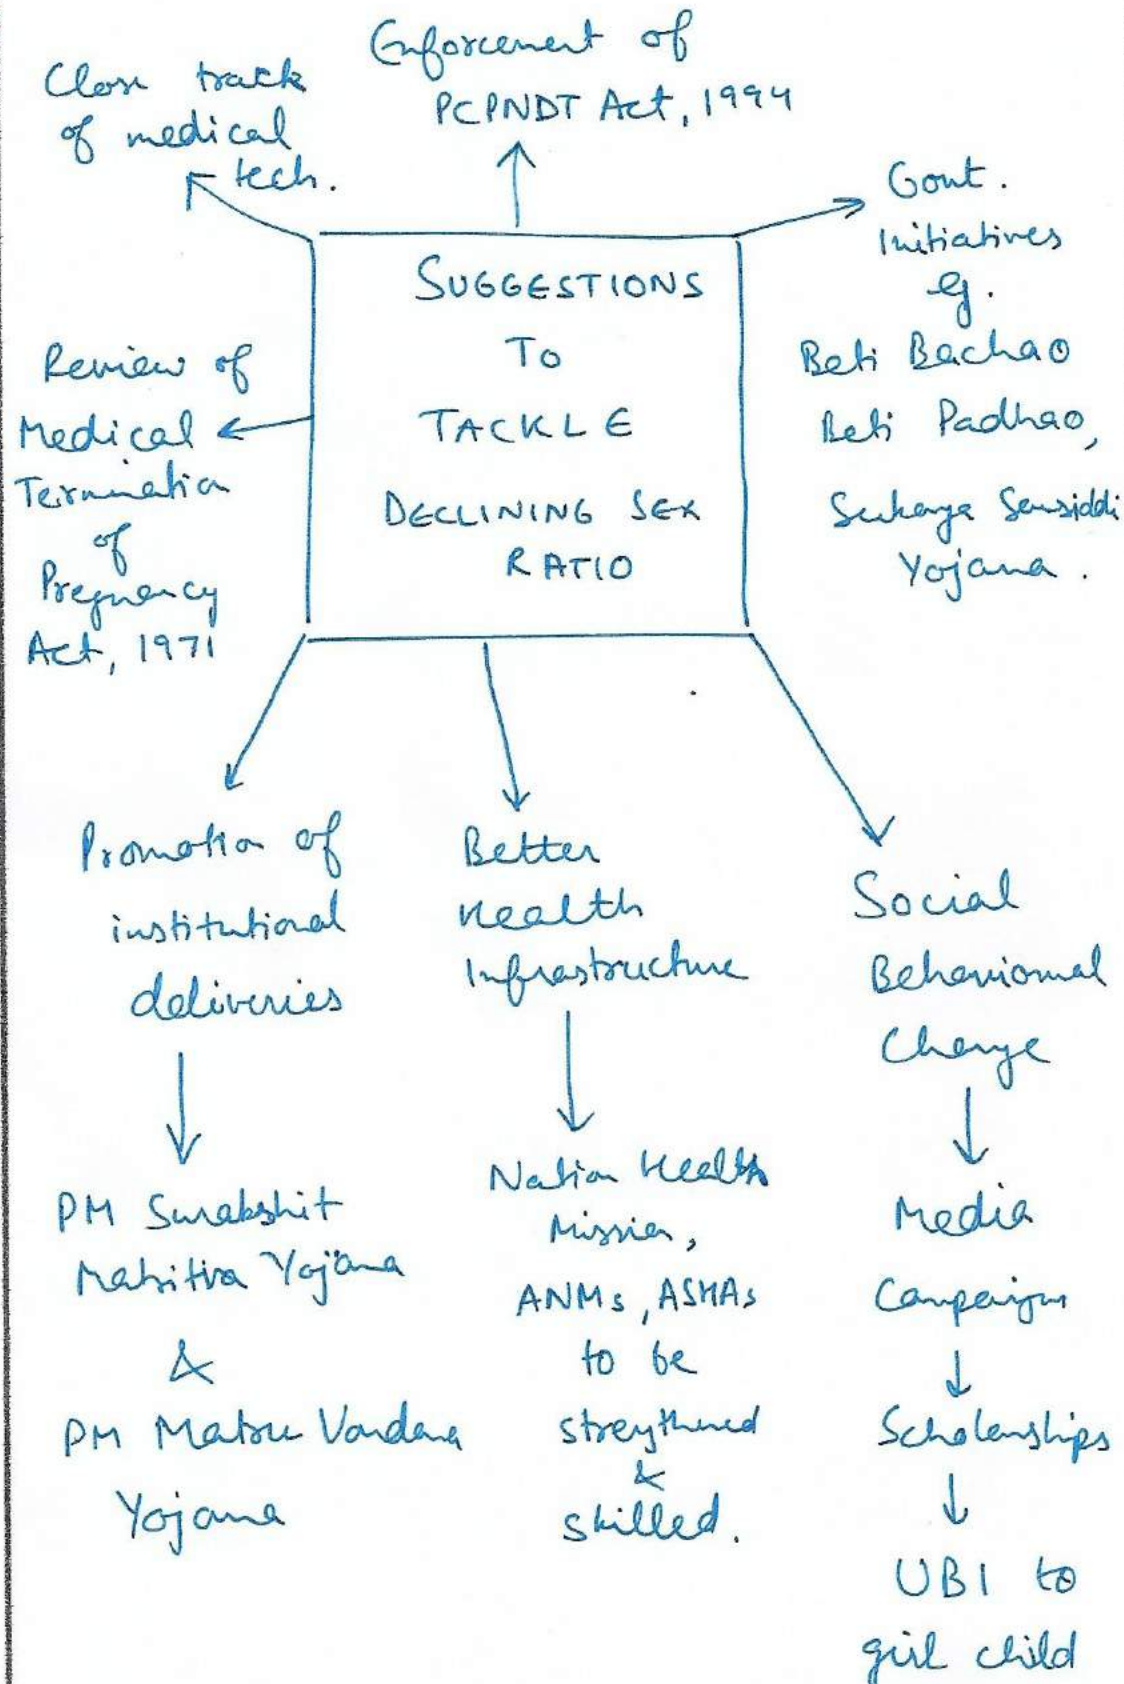 Enforcement of
PCPNDT Act, 1994
Close track
of medical
tech.
Govt.
Initiatives
eg.
Beti Bachao
Beti Padhao,
Sukanya Samriddhi
Yojana.
SUGGESTIONS
TO
TACKLE
DECLINING SEX
RATIO
Review of
Medical
Termination
of
Pregnancy
Act, 1971
Promotion of
institutional
deliveries
PM Surakshit
Matritva Yojana
&
PM Matru Vandana
Yojana
Better
Health
Infrastructure
Nation Health
Mission,
ANMs, ASHAs
to be
strengthened
&
skilled.
Social
Behavioural
Change
Media
Campaigns
Scholarships
UBI to
girl child